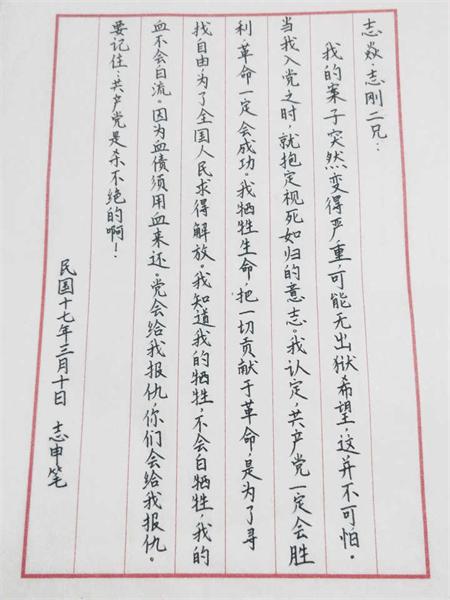 志焱·志刚二兄：
我的案子突然变得严重，可能无出狱希望，这并不可怕。
当我入党之时，就抱定视死如归的意志。我认定，共产党一定会胜
利，革命一定会成功。我牺牲生命，把一切贡献于革命，是为了寻
找自由，为了全国人民求得解放。我知道我的牺牲，不会白牺牲，我的
血不会白流。因为血债须用血来还。党会给我报仇，你们会给我报仇。
要记住：共产党是杀不绝的啊！
民国十七年三月十日 志申笔